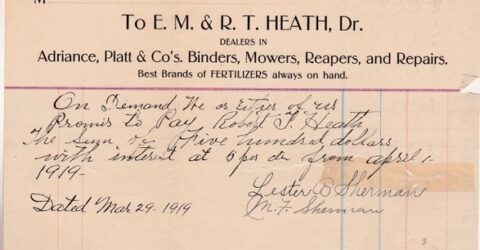 M
To E. M. & R. T. HEATH, Dr.
DEALERS IN
Adriance, Platt & Co's. Binders, Mowers, Reapers, and Repairs.
Best Brands of FERTILIZERS always on hand.
On Demand We or Either of us
Promis to Pay Robert T. Heath
The Sum of Five hundred dollars
with interest at 6 per ct from april 1-
1919-
Lester B Sherman
Dated Mar 29. 1919
M. F. Sherman